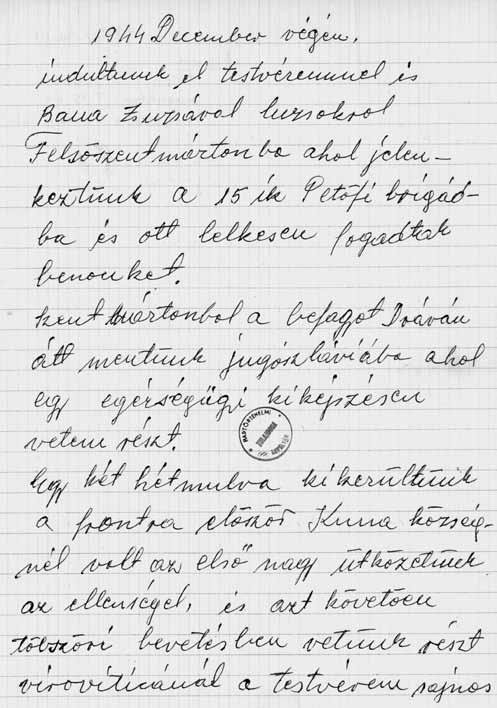 1944 December végén,
indultunk el testvéremmel és
Bana Zsuzsával luzsokrol
Felsőszentmártonba ahol jelen-
keztünk a 15 ik Petőfi brigád-
ba és ott lelkesen fogadtak
benonket.
szent Mártonbol a befagot Dráván
átt mentunk jugószláviába ahol
egy egérségügi kiképzésen
vetem részt.
PÁRTTÖRTÉNELMI
TULAJDONA
Egy két hétmulva kikerültünk
a frontra először Kuna község-
nél volt az első nagy ütközetünk
az ellenségel, és azt követően
töbszöri bevetésben vetünk részt
viroviticánál a testvérem sajnos